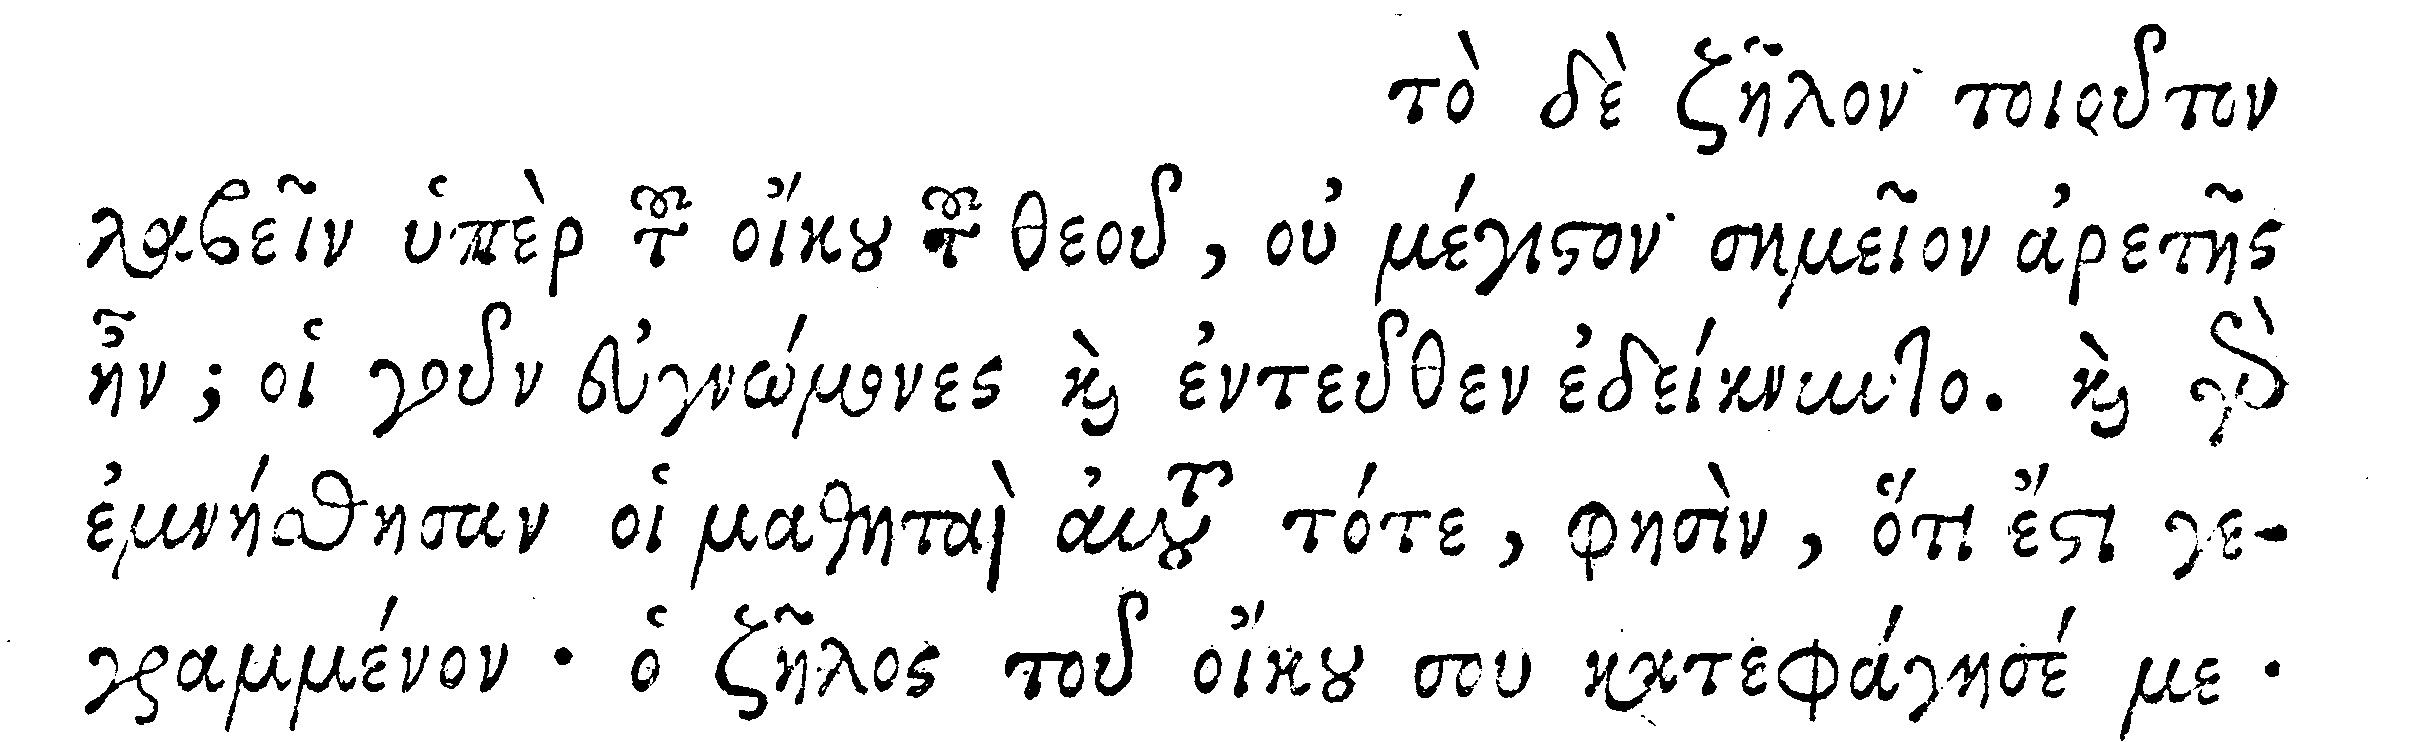 τὸ δὲ ζῆλον τοιοῦτον
λαβεῖν ὑπὲρ τοῦ οἴκου τοῦ θεοῦ, οὐ μέγιστον σημεῖον ἀρετῆς
ἦν; οἱ γοῦν εὐγνώμονες καὶ ἐντεῦθεν ἐδείκνυντο. καὶ γὰρ
ἐμνήσθησαν οἱ μαθηταὶ αὐτοῦ τότε, φησὶν, ὅτι ἔστι γε-
γραμμένον· ὁ ζῆλος τοῦ οἴκου σου κατεφάγησέ με·